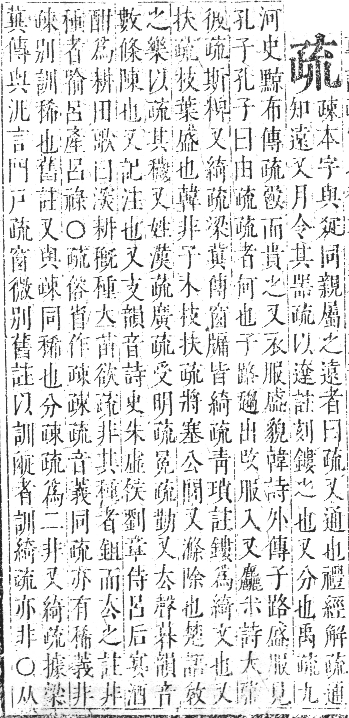 疏
疎本字與疋同親屬之遠者曰疏又通也禮經解疏通
知遠又月令其器疏以達註刻鏤之也又分也禹疏九
河史黥布傳疏爵而貴之又衣服盛貌韓詩外傳子路盛服見
孔子孔子曰由疏疏者何也子路趨出改服入又麤也詩大雅
彼疏斯粺又綺疏梁冀傳窗牖皆綺疏靑瑣註鏤爲綺文也又
扶疏枝葉盛也韓非子木枝扶疏將塞公閭又滌除也楚語敎
之樂以疏其穢又姓漢疏廣疏受明疏冕疏勤又去聲暮韻音
數條陳也又記注也又支韻音詩史朱虛侯劉章侍呂后宴酒
酣爲耕田歌曰深耕穊種立苗欲疏非其種者鉏而去之註非
種者喻呂產呂祿○疏俗省作疎踈疏音義同疏亦有稀義非
疎別訓稀也舊註又與疎同稀也分疎疏爲二非又綺疏據梁
冀傳與 言門戶疏窗微別舊註以訓 者訓綺疏亦非○从